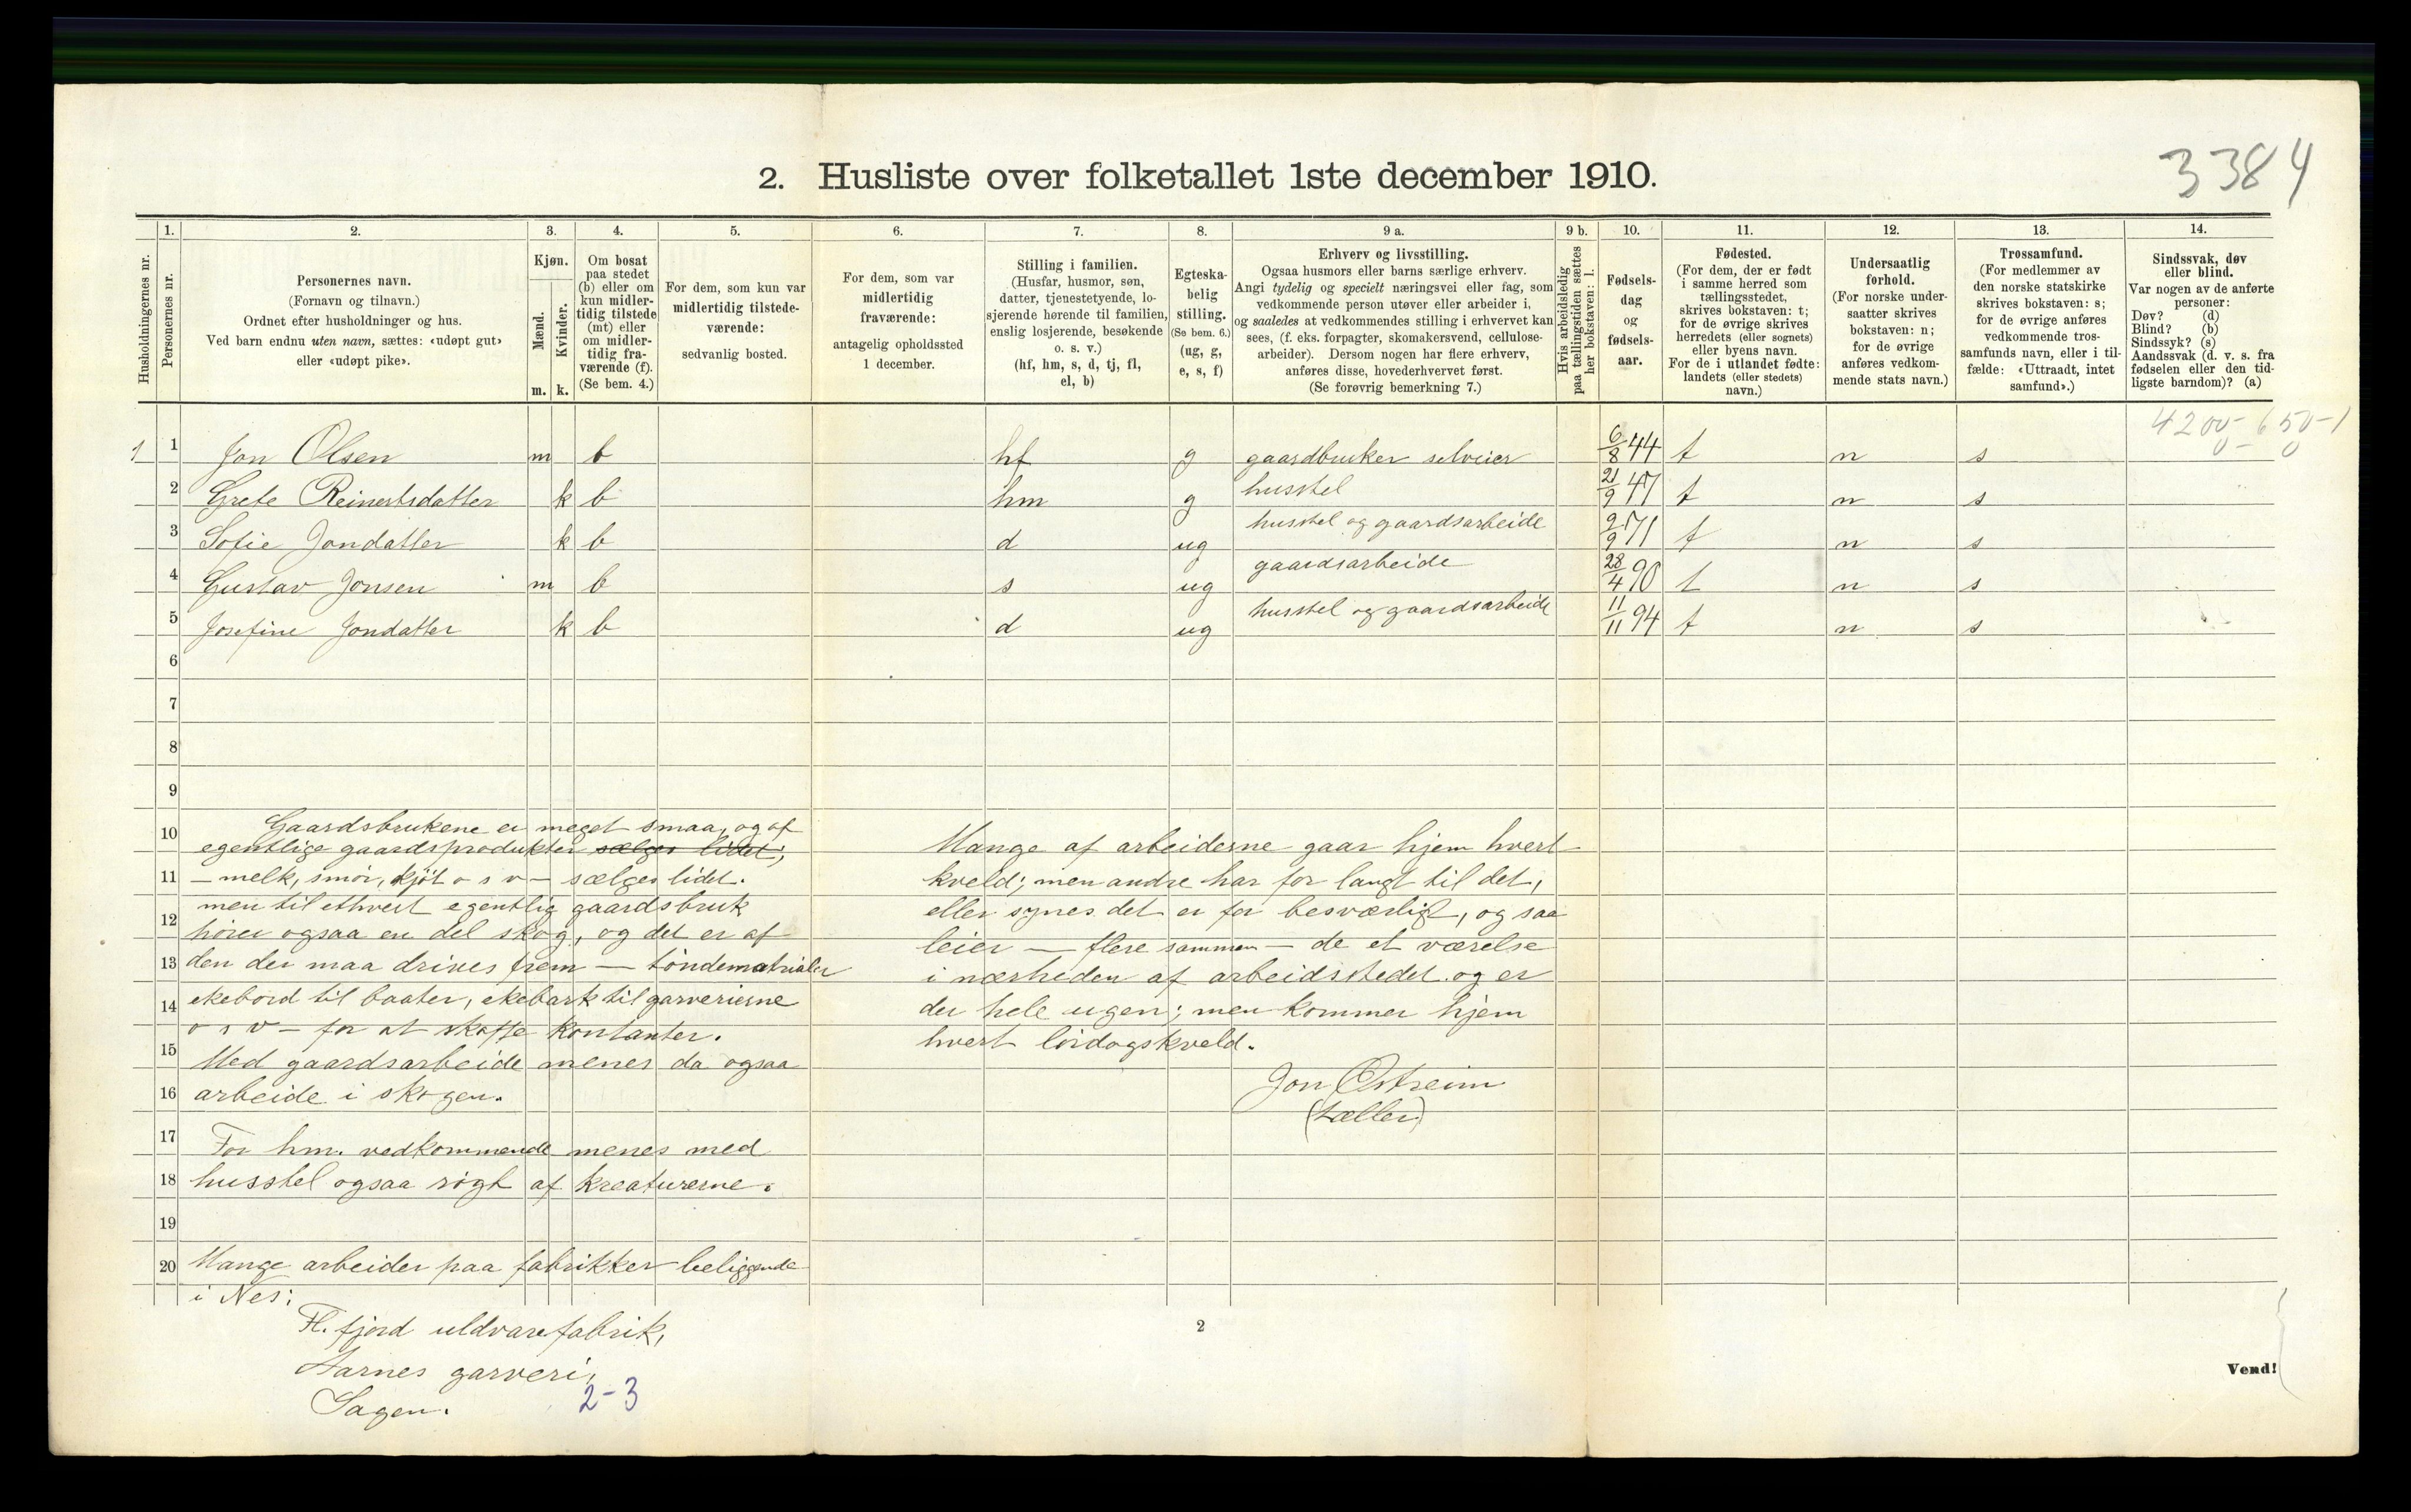 2. Husliste over folketallet 1ste december 1910.
3384
Husholdningernes nr.
1.
Personernes nr.
2.
Personernes navn.
(Fornavn og tilnavn.)
Ordnet efter husholdninger og hus.
Ved barn endnu uten navn, sættes: «udøpt gut»
eller «udøpt pike».
3.
Kjøn.
Mænd.
Kvinder.
m. k.
4.
Om bosat
paa stedet
(b) eller om
kun midler-
tidig tilstede
(mt) eller
om midler-
tidig fra-
værende (f).
(Se bem. 4.)
5.
For dem, som kun var
midlertidig tilstede-
værende:
sedvanlig bosted.
6.
For dem, som var
midlertidig
fraværende:
antagelig opholdssted
1 december.
7.
Stilling i familien.
(Husfar, husmor, søn,
datter, tjenestetyende, lo-
sjerende hørende til familien,
enslig losjerende, besøkende
o. s. v.)
(hf, hm, s, d, tj, fl,
el, b)
8.
Egteska-
belig
stilling.
(Se bem. 6.)
(ug, g,
e, s, f)
9 a.
Erhverv og livsstilling.
Ogsaa husmors eller barns særlige erhverv.
Angi tydelig og specielt næringsvei eller fag, som
vedkommende person utøver eller arbeider i,
og saaledes at vedkommendes stilling i erhvervet kan
sees, (f. eks. forpagter, skomakersvend, cellulose-
arbeider). Dersom nogen har flere erhverv,
anføres disse, hovederhvervet først.
(Se forøvrig bemerkning 7.)
9 b.
Hvis arbeidsledig
paa tællingstiden sættes
her bokstaven: l.
10.
Fødsels-
dag
og
fødsels-
aar.
11.
Fødested.
(For dem, der er født
i samme herred som
tællingsstedet,
skrives bokstaven: t;
for de øvrige skrives
herredets (eller sognets)
eller byens navn.
For de i utlandet fødte:
landets (eller stedets)
navn.)
12.
Undersaatlig
forhold.
(For norske under-
saatter skrives
bokstaven: n;
for de øvrige
anføres vedkom-
mende stats navn.)
13.
Trossamfund.
(For medlemmer av
den norske statskirke
skrives bokstaven: s;
for de øvrige anføres
vedkommende tros-
samfunds navn, eller i til-
fælde: «Uttraadt, intet
samfund».)
14.
Sindssvak, døv
eller blind.
Var nogen av de anførte
personer:
Døv? (d)
Blind? (b)
Sindssyk? (s)
Aandssvak (d. v. s. fra
fødselen eller den tid-
ligste barndom)? (a)
4200-650-1
0-0
1 1 Jon Olsen m b hf g gaardbruker selveier 6/8 44 t n s
2 Grete Reinertsdatter k b hm g husstel 21/9 47 t n s
3 Sofie Jondatter k b d ug husstel og gaardsarbeide 2/9 71 t n s
4 Gustav Jonsen m b s ug gaardsarbeide 28/4 90 t n s
5 Josefine Jondatter k b d ug husstel og gaardsarbeide 11/11 94 t n s
6
7
8
9
10
11
12
13
14
15
16
17
18
19
20
Gaardsbrukene er meget smaa, og af
egentlige gaardsprodukter sælges lidet;
- melk, smör, kjöt o s v - sælges lidet.
men til ethvert egentlig gaardsbruk
hörer ogsaa en del skog, og det er af
den der maa drives frem - töndematrialer
ekebord til baater, ekebark til garverierne
o s v - for at skaffe kontanter.
Med gaardsarbeide menes da ogsaa
arbeide i skogen.
For hm. vedkommende menes med
husstel ogsaa rögt af kreaturerne.
Mange arbeider paa fabrikker beliggende
i Nes:
Fl. fjord uldvarefabrik,
Aarnes garveri,
Sagen.
2-3
Mange af arbeiderne gaar hjem hvert
kveld; men andre har for langt til det,
eller synes det er for besværligt, og saa
leier - flere sammen - de et værelse
i nærheden af arbeidsstedet og er
der hele ugen; men kommer hjem
hvert lördagskveld.
Jon Østreim
(tæller)
2
Vend!